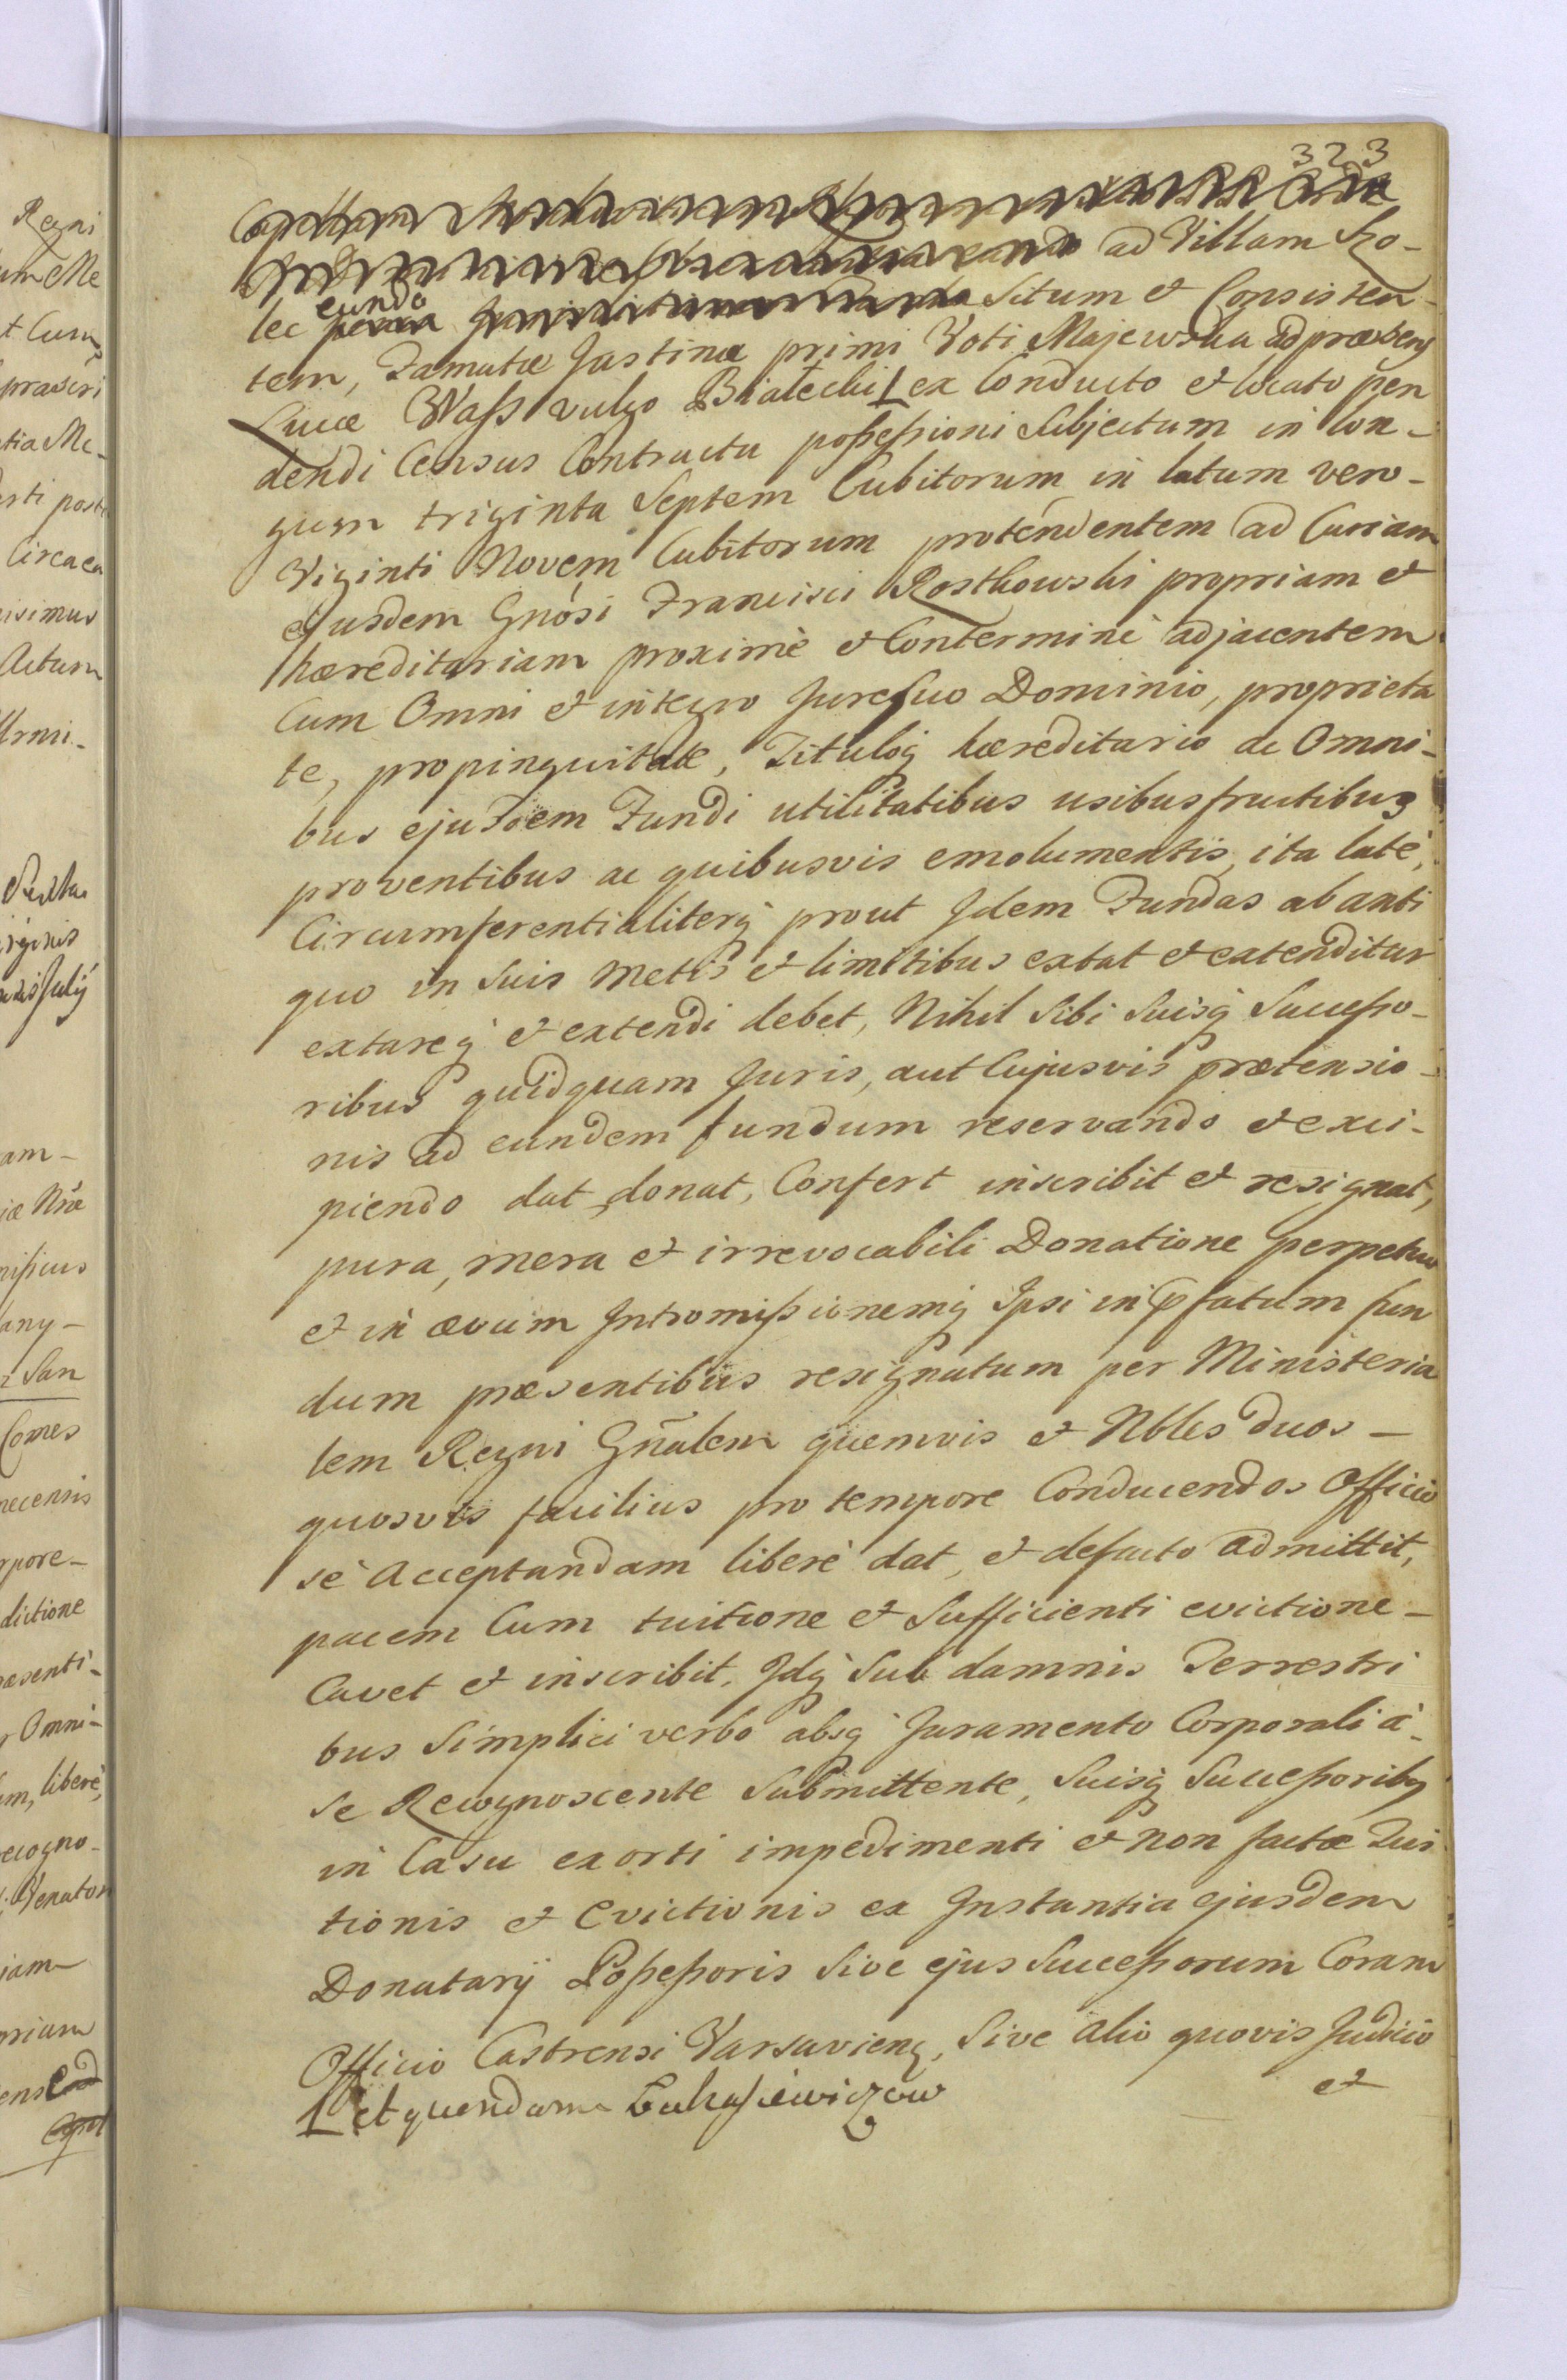 323
ad Villam Szo-
lec eundo Situm et Consisten-
tem, Famatæ Justinæ primi Voti Majewska ad præsens
Lucæ Wass vulgo Białecki L ex Conducto et locato pen
dendi Census Contractu possessioni Subjectum in lon-
gum triginta Septem Cubitorum in latum vero-
Viginti Novem Cubitorum protendentem ad Curiam
ejusdem Gnosi Francisci Rostkowski propriam et
hæreditariam proximè et Contermine adjacentem
Cum Omni et integro Jure Suo Dominio, proprieta
te, propinquitate, Tituloq hæreditario ac Omni-
bus ejusdem Fundi utilitatibus usibusfructibus
proventibus ac quibusvis emolumentis, ita latè,
Circumferentialiterq prout Idem Fundus ab anti
quo in Suis Metis et limitibus extat et extenditur
extareq et extendi debet, Nihil Sibi Suisq Succeßo-
ribus quidquam Juris, aut Cujusvis prætensio-
nis ad eundem fundum reservando et exci-
piendo dat, donat, Confert inscribit et resignat,
pura, mera et irrevocabili Donatione perpetuo
et in ævum Intromißionemq Ipsi in pfatum fun
dum præsentibus resignatum per Ministeria
lem Regni Gnalem quemvis et Nbles duos-
quosvis facilius pro tempore Conducendos Officio
sè Acceptandam liberè dat, et defacto admittit,
pacem Cum tuitione et Sufficienti evictione-
Cavet et inscribit. Idq Sub damnis Terrestri
bus Simplici verbo absq Juramento Corporali à-
Se Recognoscente Submittente, Suisq Succeßoribq
in Casu exorti impedimenti et non factæ Tui
tionis et Evictionis ex Instantia ejusdem
Donatarij Poßeßoris Sive ejus Succeßorum Coram
Officio Castrensi Varsavienq, Sive alio quovis Judicio
et
L et quendam Łukasiewiczow